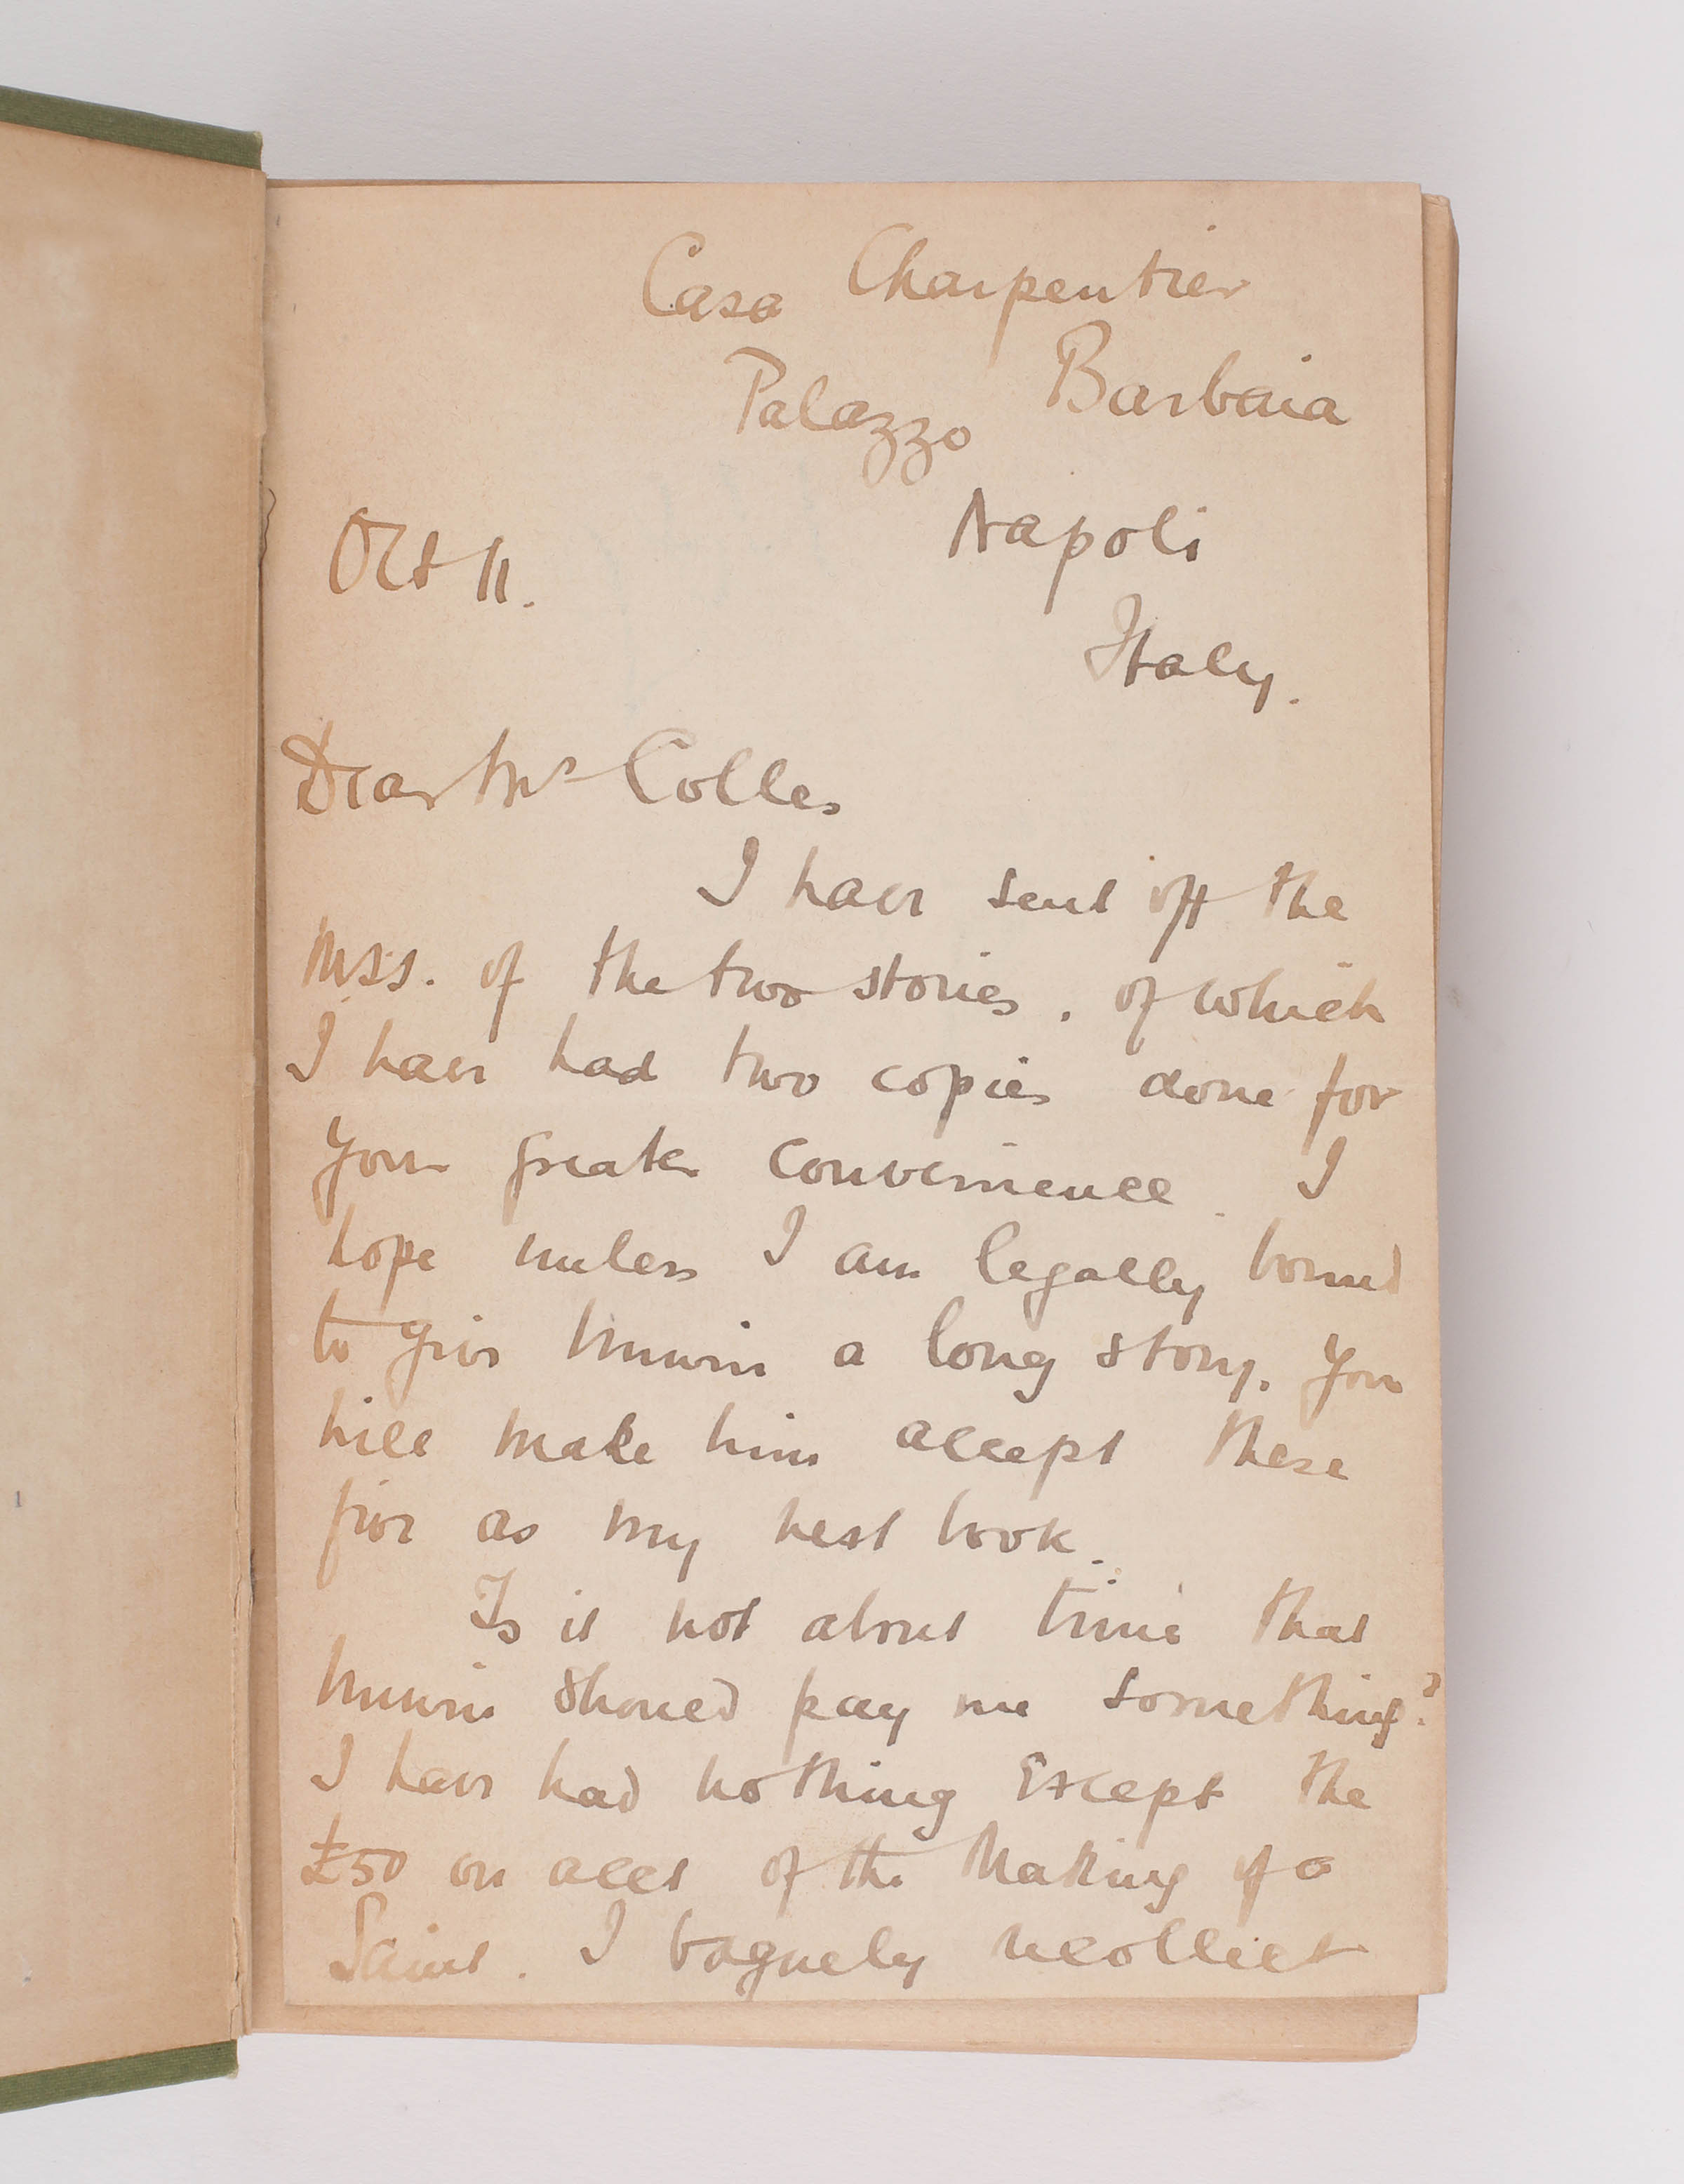 Casa Charpentier
Palazzo Barbaia
Napoli
Oct 11.
Italy.
Dear Mr Colles
I have sent off the
MSS. of the two stories, of which
I have had two copies done for
your greater convenience. I
hope unless I am legally bound
to give Unwin a long story, you
will make him accept these
five as my next book.
Is it not about time that
Unwin should pay me something?
I have had nothing except the
£50 on acct of the Making of a
Saint. I vaguely recollect